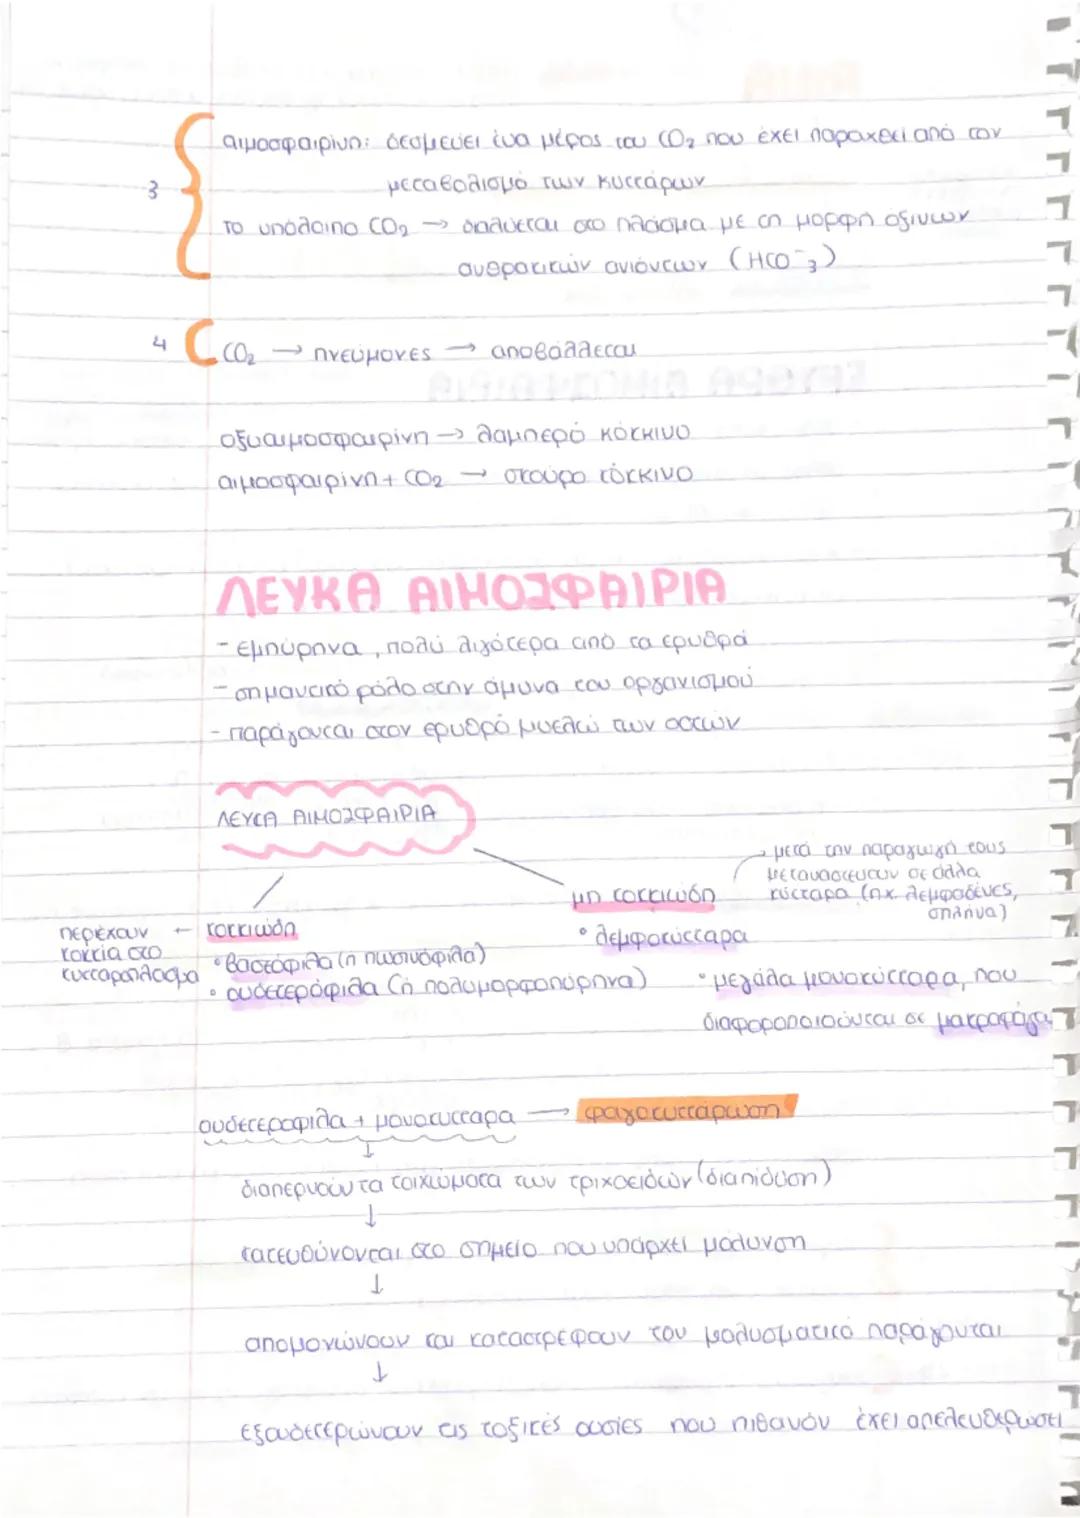 αιμοσφαιρίνη: δεσμεύει ένα μέρος του CO₂ που έχει παραχθεί από τον
3
μεταβολισμό των κυττάρων
το υπόλοιπο CO₂ → διαλύεται στο πλάσμα με τη μορφή όξινων
ανθρακικών ανιόντων (HCO⁻₃)
4 CO₂ → πνεύμονες → αποβάλλεται
οξυαιμοσφαιρίνη → λαμπερό κόκκινο
αιμοσφαιρίνη + CO₂ → σκούρο κόκκινο
ΛΕΥΚΑ ΑΙΜΟΣΦΑΙΡΙΑ
- εμπύρηνα, πολύ λιγότερα από τα ερυθρά
- σημαντικό ρόλο στην άμυνα του οργανισμού
- παράγονται στον ερυθρό μυελό των οστών
ΛΕΥΚΑ ΑΙΜΟΣΦΑΙΡΙΑ
→ μετά την παραγωγή τους
μεταναστεύουν σε άλλα
κύτταρα (πχ. λεμφαδένες,
σπλήνα)
μη κοκκιώδη
περιέχουν ← κοκκιώδη
κοκκία στο
κυτταρόπλασμα
• λεμφοκύτταρα
• βασεόφιλα (ή ηωσινόφιλα)
• ουδετερόφιλα (ή πολυμορφοπύρηνα)
• μεγάλα μονοκύτταρα, που
διαφοροποιούνται σε μακροφάγα
ουδετεροφιλα + μονοκυτταρα → φαγοκυττάρωση
↓
διαπερνούν τα τοιχώματα των τριχοειδών (διαπίδυση)
↓
κατευθύνονται στο σημείο που υπάρχει μόλυνση
↓
απομονώνουν και καταστρέφουν τον μολυσματικό παράγονται
↓
εξουδετερώνουν τις τοξικές ουσίες που πιθανόν έχει απελευθερώσει